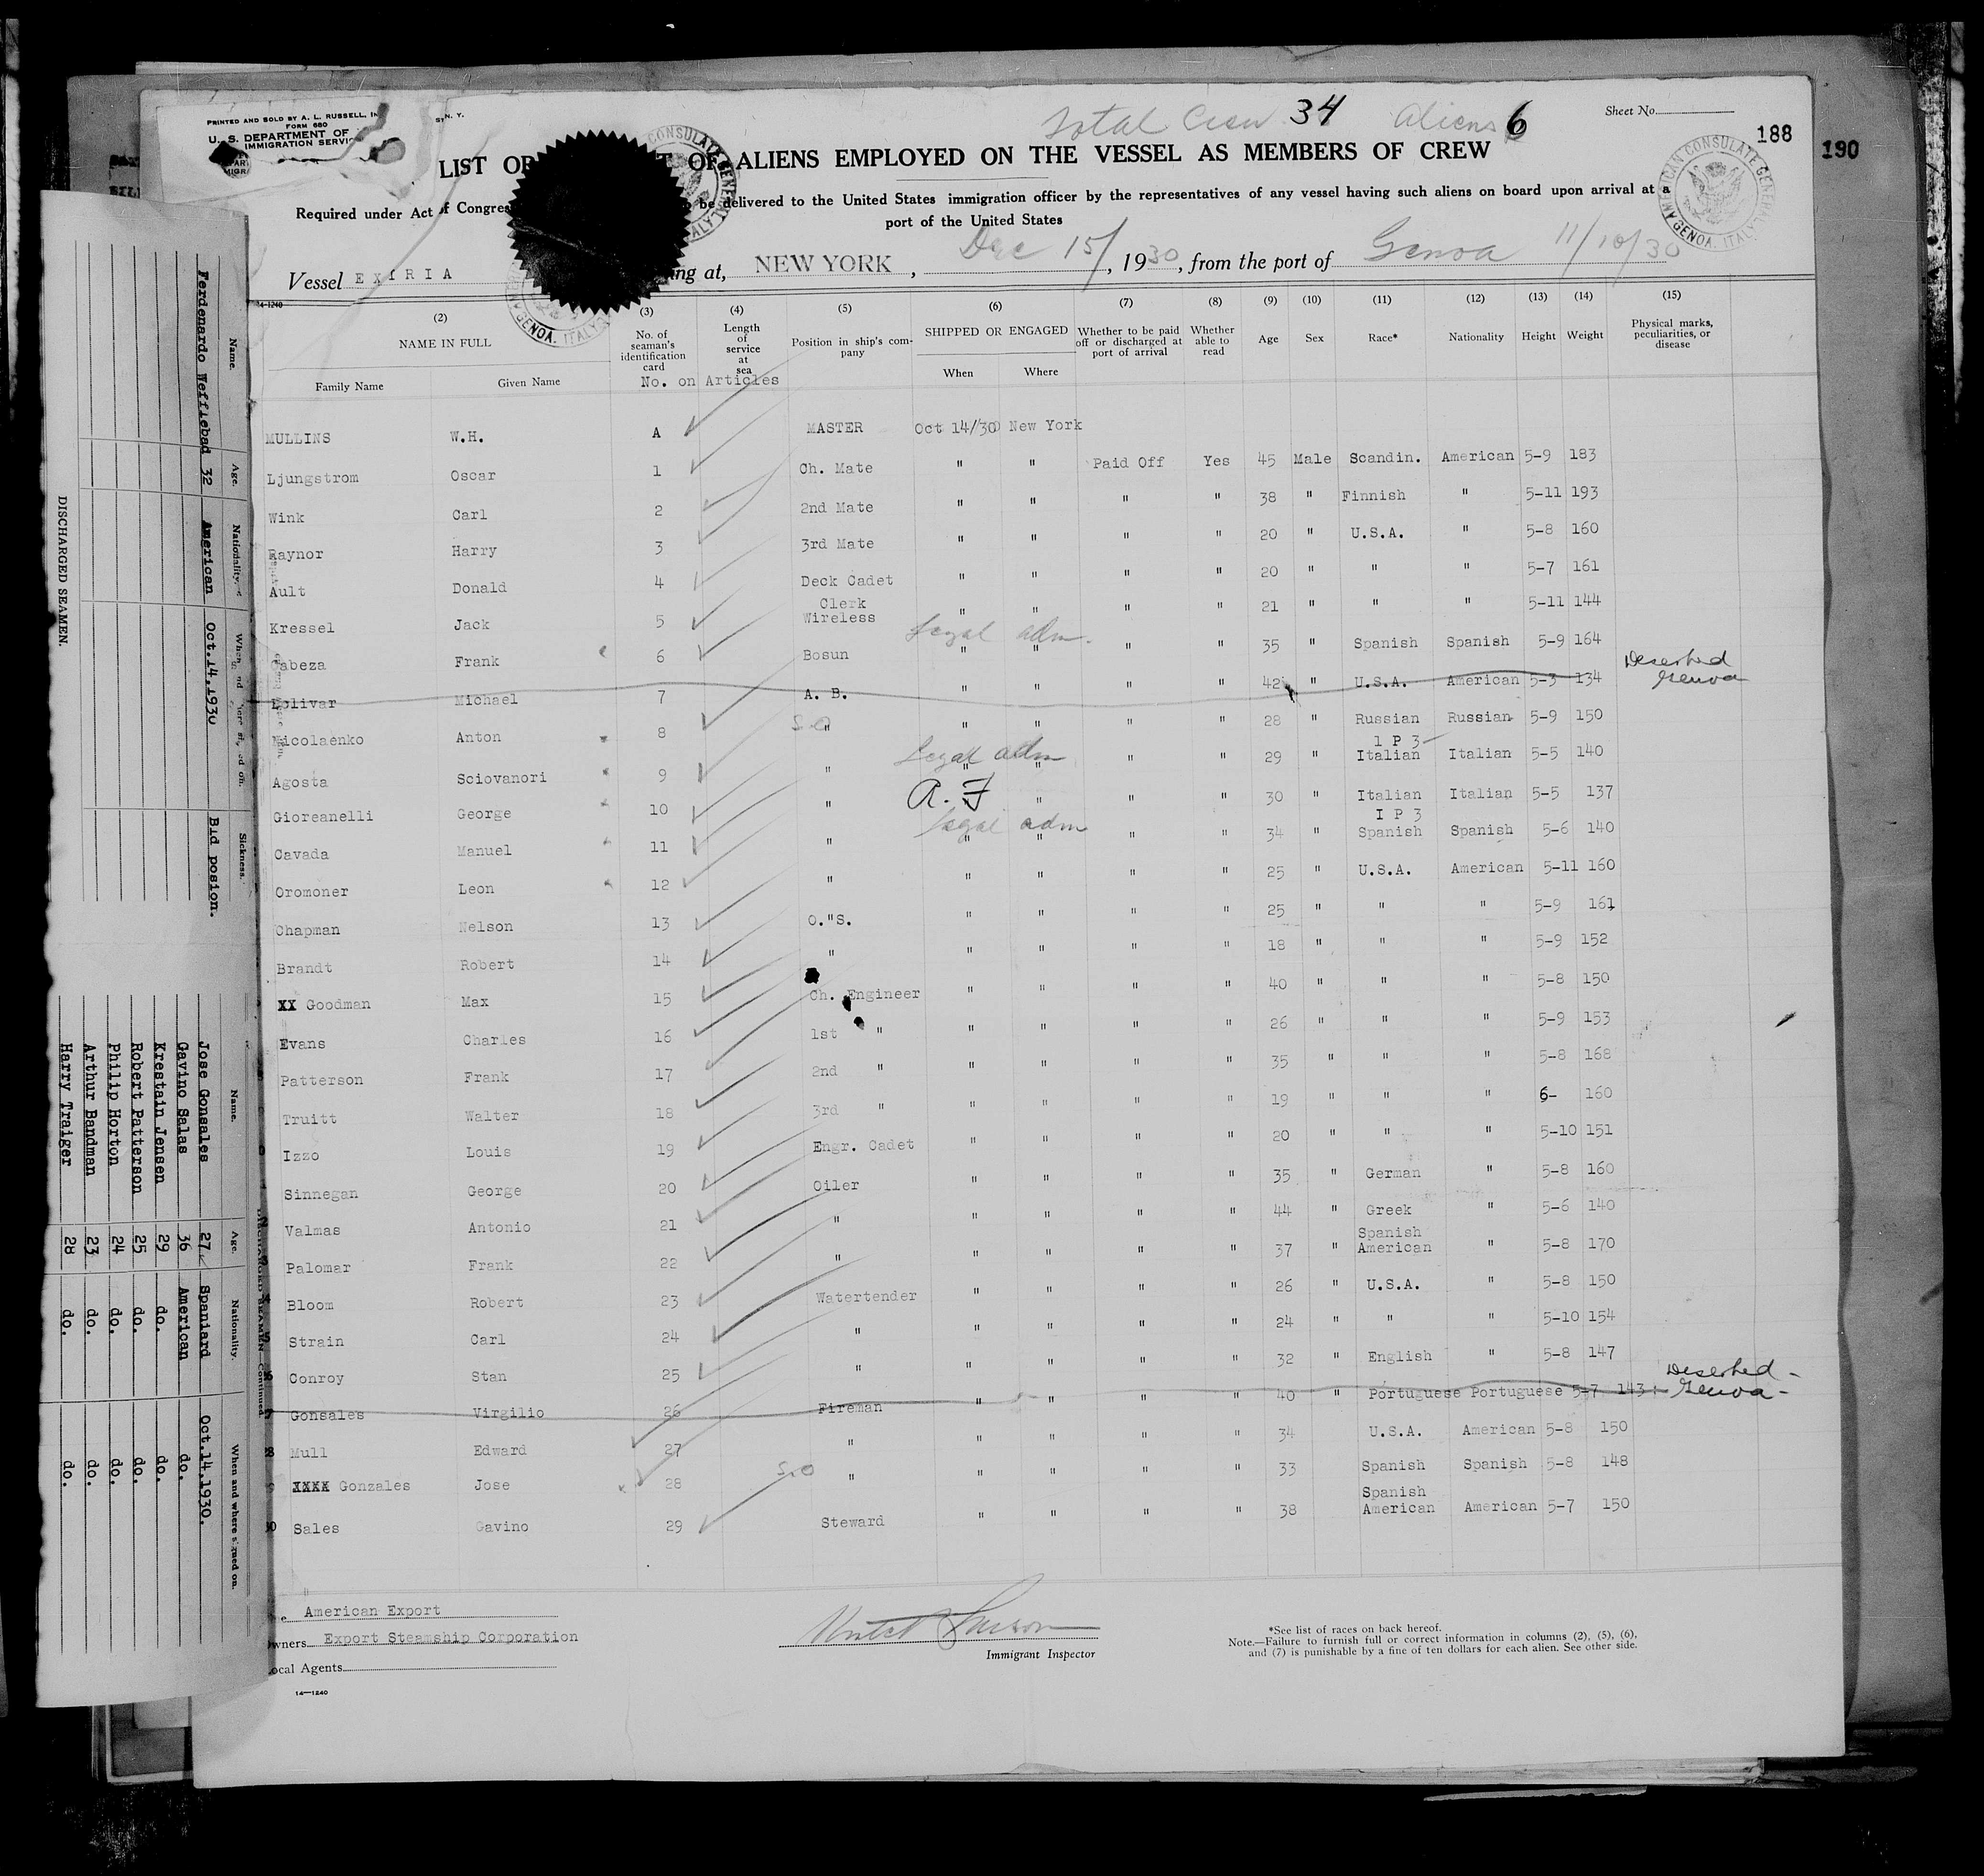 Total Crew 34 Aliens 6
Sheet No.
188
190
PRINTED AND SOLD BY A. L. RUSSELL,
FORM 680
U. S. DEPARTMENT OF
IMMIGRATION SERVI
N. Y.
LIST OR OF ALIENS EMPLOYED ON THE VESSEL AS MEMBERS OF CREW
Required under Act of Congres be delivered to the United States immigration officer by the representatives of any vessel having such aliens on board upon arrival at a
port of the United States
AMERICAN CONSULATE GENERAL GENOA, ITALY
Vessel EXIRIA ing at, NEW YORK, Dec 15/, 1930, from the port of Genoa 11/10/30
14-1240
(2) (3) (4) (5) (6) (7) (8) (9) (10) (11) (12) (13) (14) (15)
NAME IN FULL
Family Name Given Name
No. of seaman's identification card
Length of service at sea
Position in ship's company
SHIPPED OR ENGAGED
When Where
Whether to be paid off or discharged at port of arrival
Whether able to read
Age Sex Race* Nationality Height Weight
Physical marks, peculiarities, or disease
No. on Articles
MULLINS W.H. A MASTER Oct 14/30 New York
Ljungstrom Oscar 1 Ch. Mate " " Paid Off Yes 45 Male Scandin. American 5-9 183
Wink Carl 2 2nd Mate " " " " 38 " Finnish " 5-11 193
Raynor Harry 3 3rd Mate " " " " 20 " U.S.A. " 5-8 160
Ault Donald 4 Deck Cadet " " " " 20 " " " 5-7 161
Kressel Jack 5 Clerk Wireless " " " " 21 " " " 5-11 144
Legal adm.
Cabeza Frank 6 Bosun " " " " 35 " Spanish Spanish 5-9 164
Bolivar Michael 7 A. B. " " " " 42 " U.S.A. American 5-3 134 Deserted Genoa
Nicolaenko Anton 8 S.O " " " " " 28 " Russian Russian 5-9 150
Legal adm 1 P 3
Agosta Sciovanori 9 " " " " " 29 " Italian Italian 5-5 140
Gioreanelli George 10 " A. F " " " 30 " Italian Italian 5-5 137
Legal adm I P 3
Cavada Manuel 11 " " " " " 34 " Spanish Spanish 5-6 140
Oromoner Leon 12 " " " " " 25 " U.S.A. American 5-11 160
Chapman Nelson 13 O."S. " " " " 25 " " " 5-9 161
Brandt Robert 14 " " " " " 18 " " " 5-9 152
XX Goodman Max 15 Ch. Engineer " " " " 40 " " " 5-8 150
Evans Charles 16 1st " " " " " 26 " " " 5-9 153
Patterson Frank 17 2nd " " " " " 35 " " " 5-8 168
Truitt Walter 18 3rd " " " " " 19 " " " 6- 160
Izzo Louis 19 Engr. Cadet " " " " 20 " " " 5-10 151
Sinnegan George 20 Oiler " " " " 35 " German " 5-8 160
Valmas Antonio 21 " " " " " 44 " Greek " 5-6 140
Palomar Frank 22 " " " " " 37 " Spanish American " 5-8 170
Bloom Robert 23 Watertender " " " " 26 " U.S.A. " 5-8 150
Strain Carl 24 " " " " " 24 " " " 5-10 154
Conroy Stan 25 " " " " " 32 " English " 5-8 147
Gonsales Virgilio 26 Fireman " " " " 40 " Portuguese Portuguese 5-7 143 Deserted - Genoa -
Mull Edward 27 " " " " " 34 U.S.A. American 5-8 150
XXXX Gonzales Jose 28 S.O " " " " " 33 Spanish Spanish 5-8 148
Sales Gavino 29 Steward " " " " 38 Spanish American American 5-7 150
American Export
Owners Export Steamship Corporation
Local Agents
14-1240
Immigrant Inspector
*See list of races on back hereof.
Note.—Failure to furnish full or correct information in columns (2), (5), (6),
and (7) is punishable by a fine of ten dollars for each alien. See other side.
DISCHARGED SEAMEN.
Name. Age. Nationality. Sickness.
Ferdenardo Wefflebad 32 American Oct.14.1930 Bid posion.
DISCHARGED SEAMEN—Continued
Name. Age. Nationality. When and where signed on.
Jose Gonsales 27 Spaniard Oct.14.1930.
Gavino Salas 36 American do.
Krestain Jensen 29 do. do.
Robert Patterson 25 do. do.
Philip Horton 24 do. do.
Arthur Bandman 23 do. do.
Harry Traiger 28 do. do.